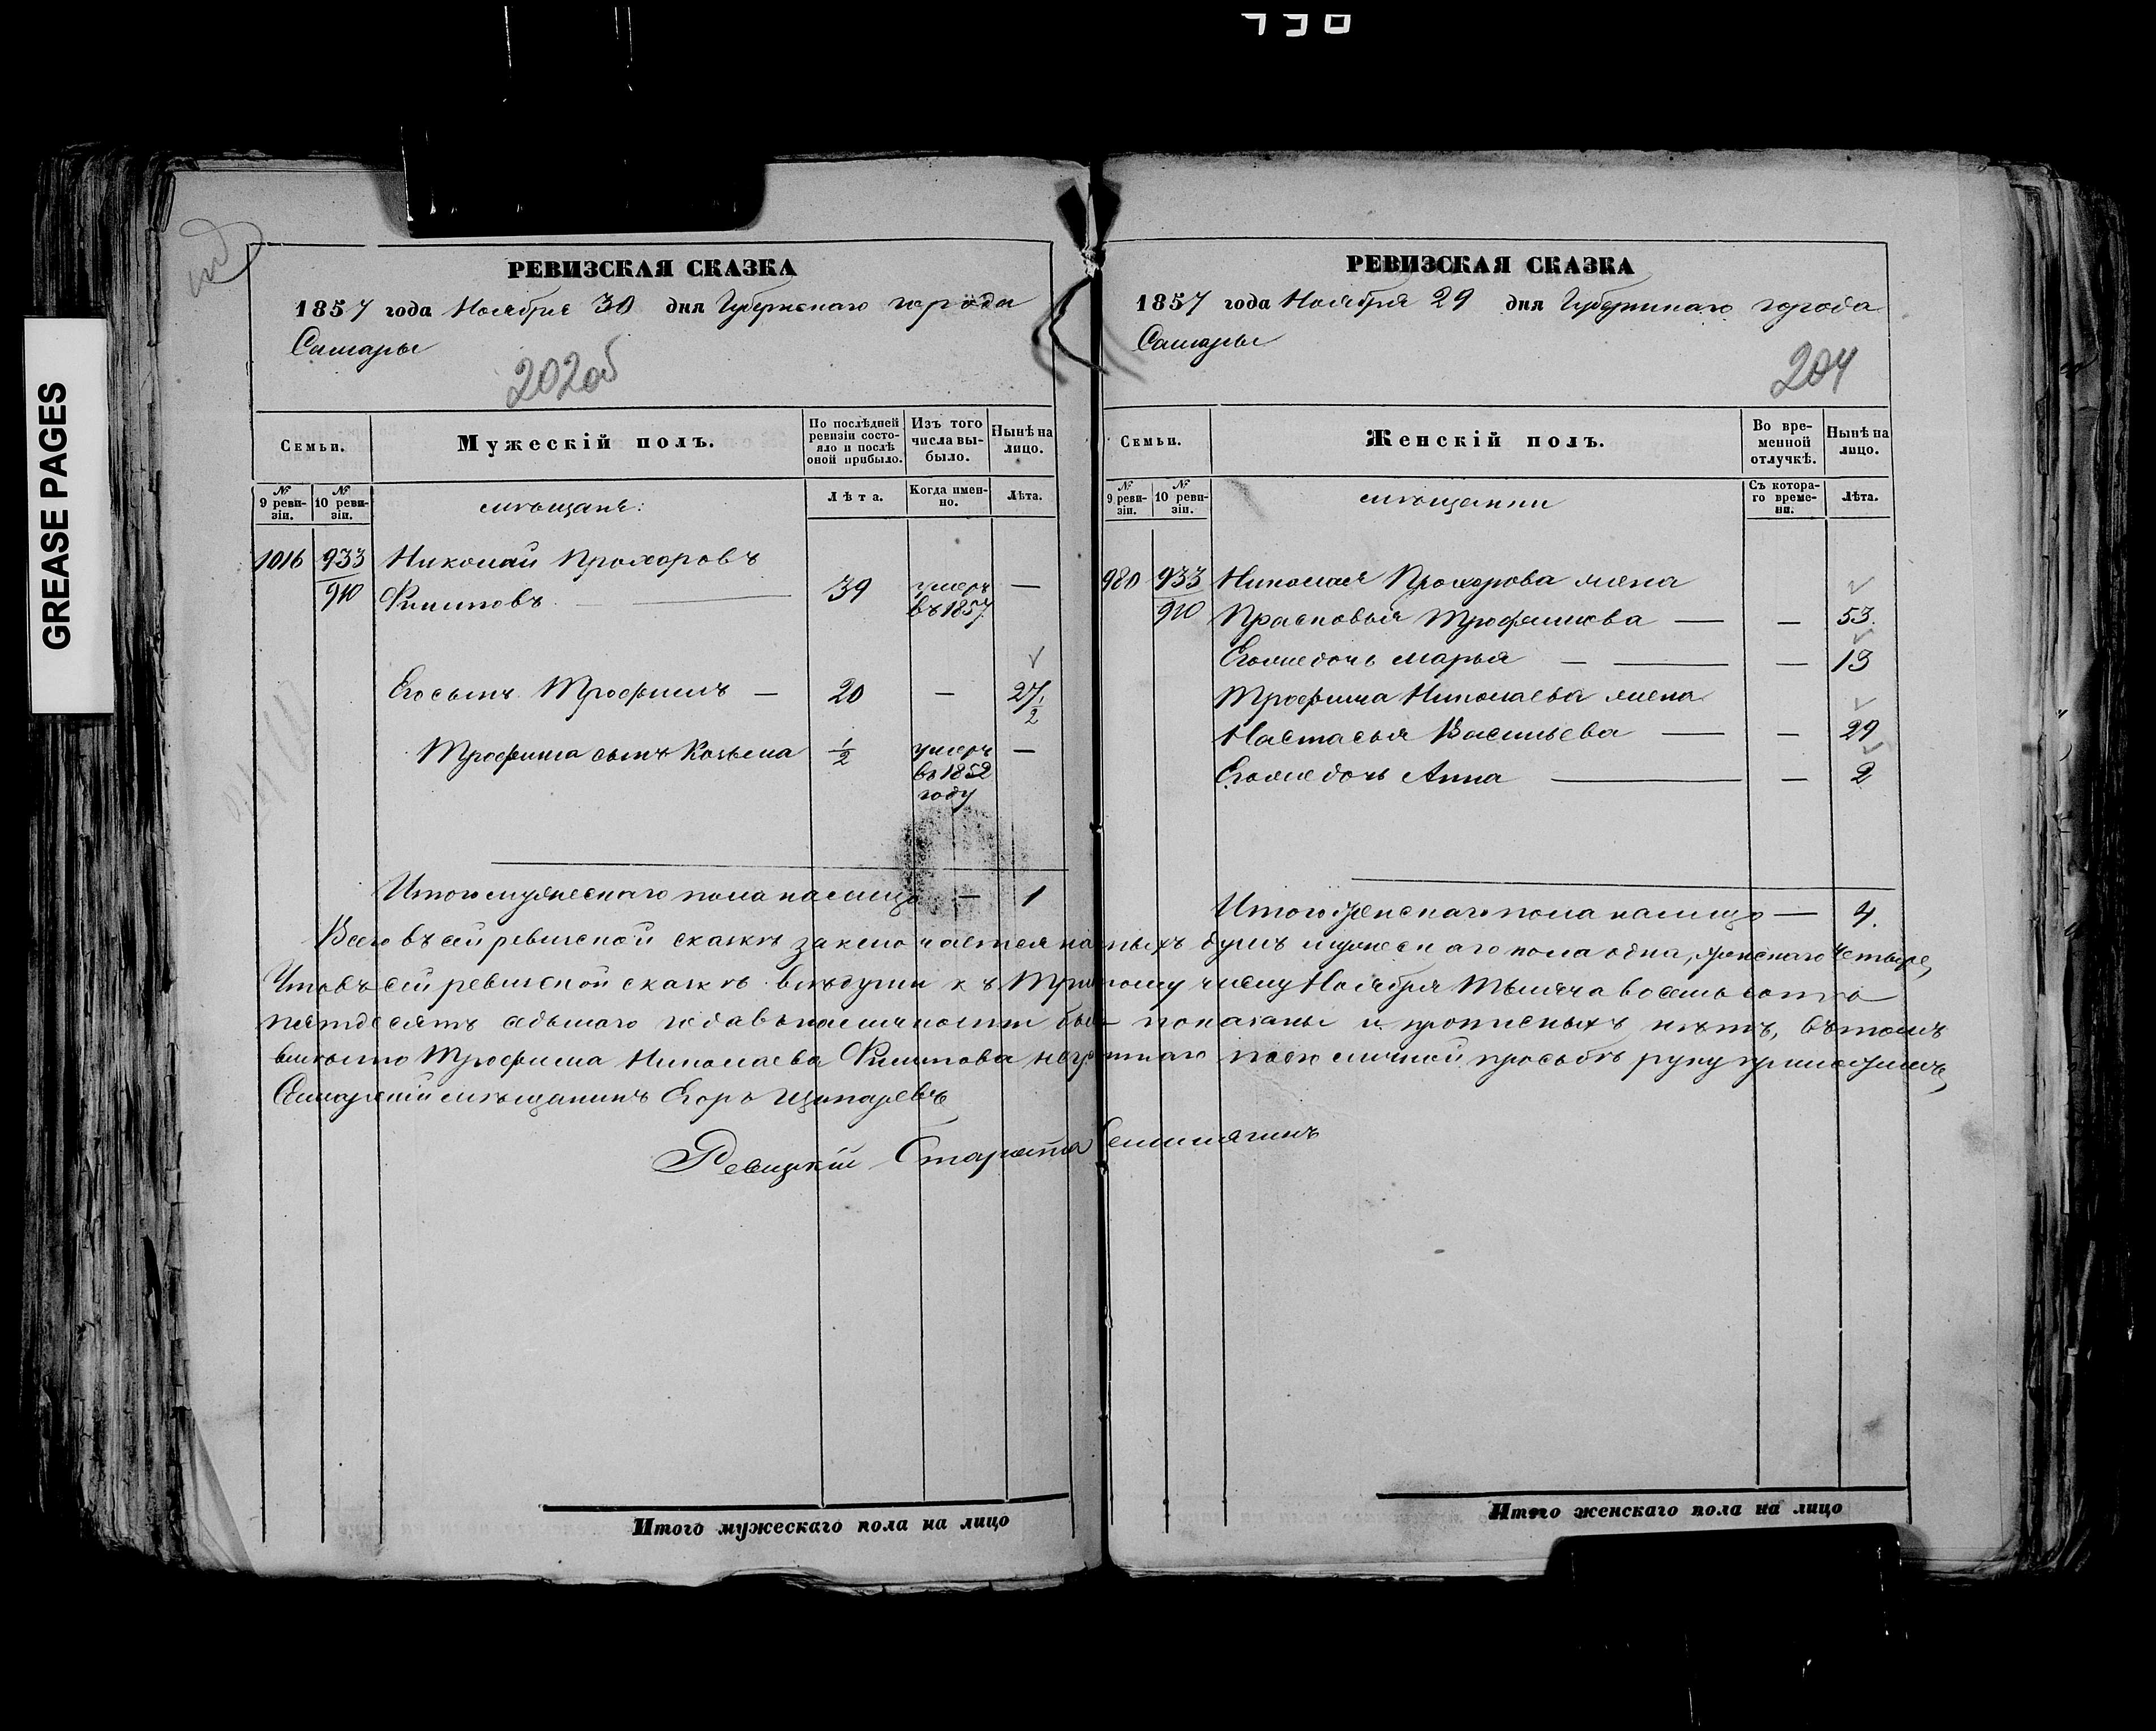 GREASE PAGES
РЕВИЗСКАЯ СКАЗКА
1857 года Ноября 30 дня Губернскаго города
Самары
202об
Семьи. Мужескій полъ. По послѣдней ревизіи состояло и послѣ оной прибыло. Изъ того числа выбыло. Нынѣ на лицо.
№ 9 ревизіи. № 10 ревизіи. мѣщане: Лѣта. Когда именно. Лѣта.
1016 933 Николай Прохоровъ
910 Филиповъ — 39 умеръ въ 1857 —
Его сынъ Трофимъ — 20 — 27 1/2
Трофима сынъ Козьма 1/2 умеръ въ 1852 году —
Итого мужескаго пола налицо — 1
РЕВИЗСКАЯ СКАЗКА
1857 года Ноября 29 дня Губернскаго города
Самары
204
Семьи. Женскій полъ. Во временной отлучкѣ. Нынѣ на лицо.
№ 9 ревизіи. № 10 ревизіи. мѣщанки Съ котораго времени. Лѣта.
980 933 Николая Прохорова жена
910 Прасковья Трофимова — — 53.
Его же дочь Марья — — — 13
Трофима Николаева жена
Настасья Васильева — — 29
Его же дочь Анна — — 2
Итого женскаго пола налицо — 4.
Всего въ сей ревиской сказкѣ заключается наличныхъ душъ мужескаго пола одна, женскаго четыре,
Что въ сей ревиской сказкѣ всѣ души къ Ноября Тысяча восемь сотъ
пятдесятъ седьмаго года въ наличности были показаны и прописныхъ нѣтъ, въ томъ
вмѣсто Трофима Николаева Филипова неграмотнаго по его личной прозьбѣ руку приложилъ,
Самарскій мѣщанинъ Егоръ
Ревизкій Староста
Итого мужескаго пола на лицо
Итого женскаго пола на лицо